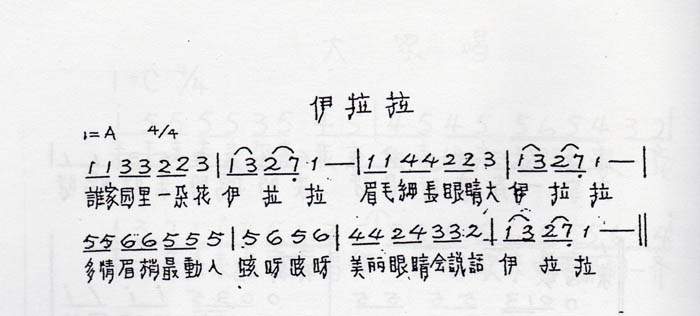 伊拉拉
1=A 4/4
1 1 3 3 2 2 3 | 1 3 2 7 1 — | 1 1 4 4 2 2 3 | 1 3 2 7 1 — |
誰家园里一朶花 伊 拉 拉 眉毛細長眼睛大 伊 拉 拉
5 5 6 6 5 5 5 | 5 6 5 6 | 4 4 2 4 3 3 2 | 1 3 2 7 1 — ‖
多情眉梢最動人 咳呀咳呀 美丽眼睛会説話 伊 拉 拉